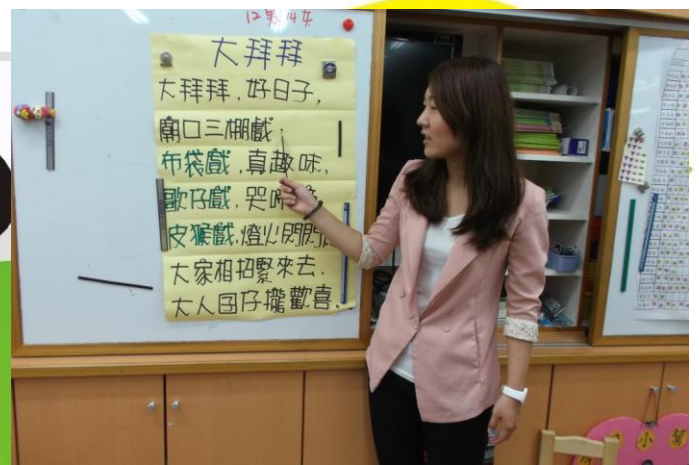 12男14女
大拜拜
大拜拜,好日子,
廟口三棚戲.
布袋戲,真趣味,
歌仔戲,哭
皮猴戲,燈火閃閃
大家相招緊來去.
大人囝仔攏歡喜.
小幫